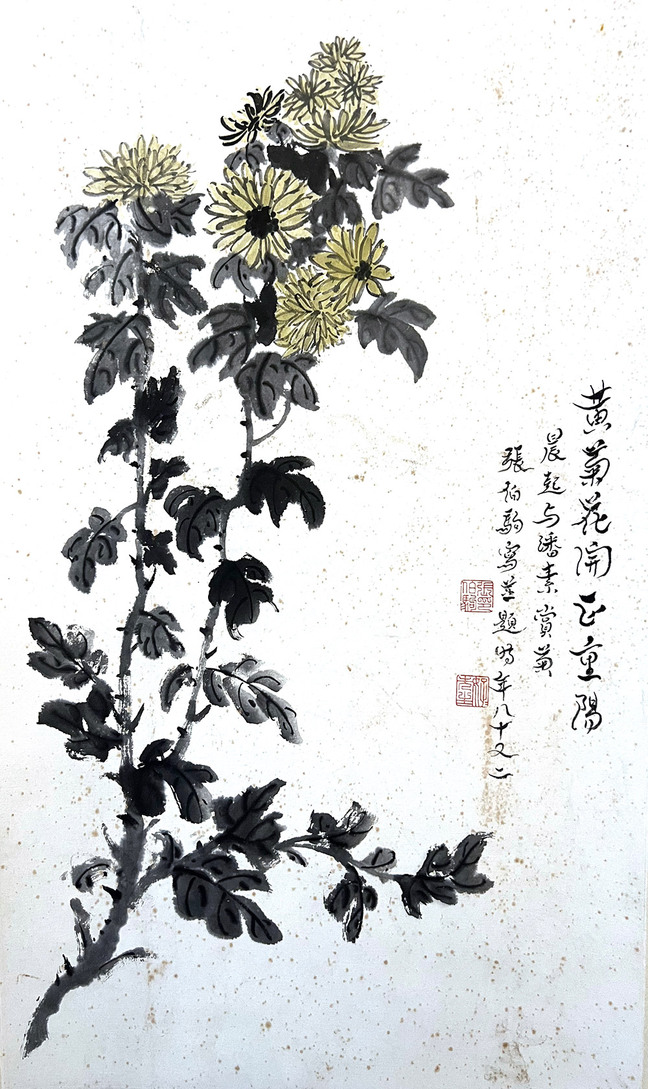 黃菊花開正重陽
晨起与潘素賞菊
張伯駒寫並題時年八十又二
張伯駒